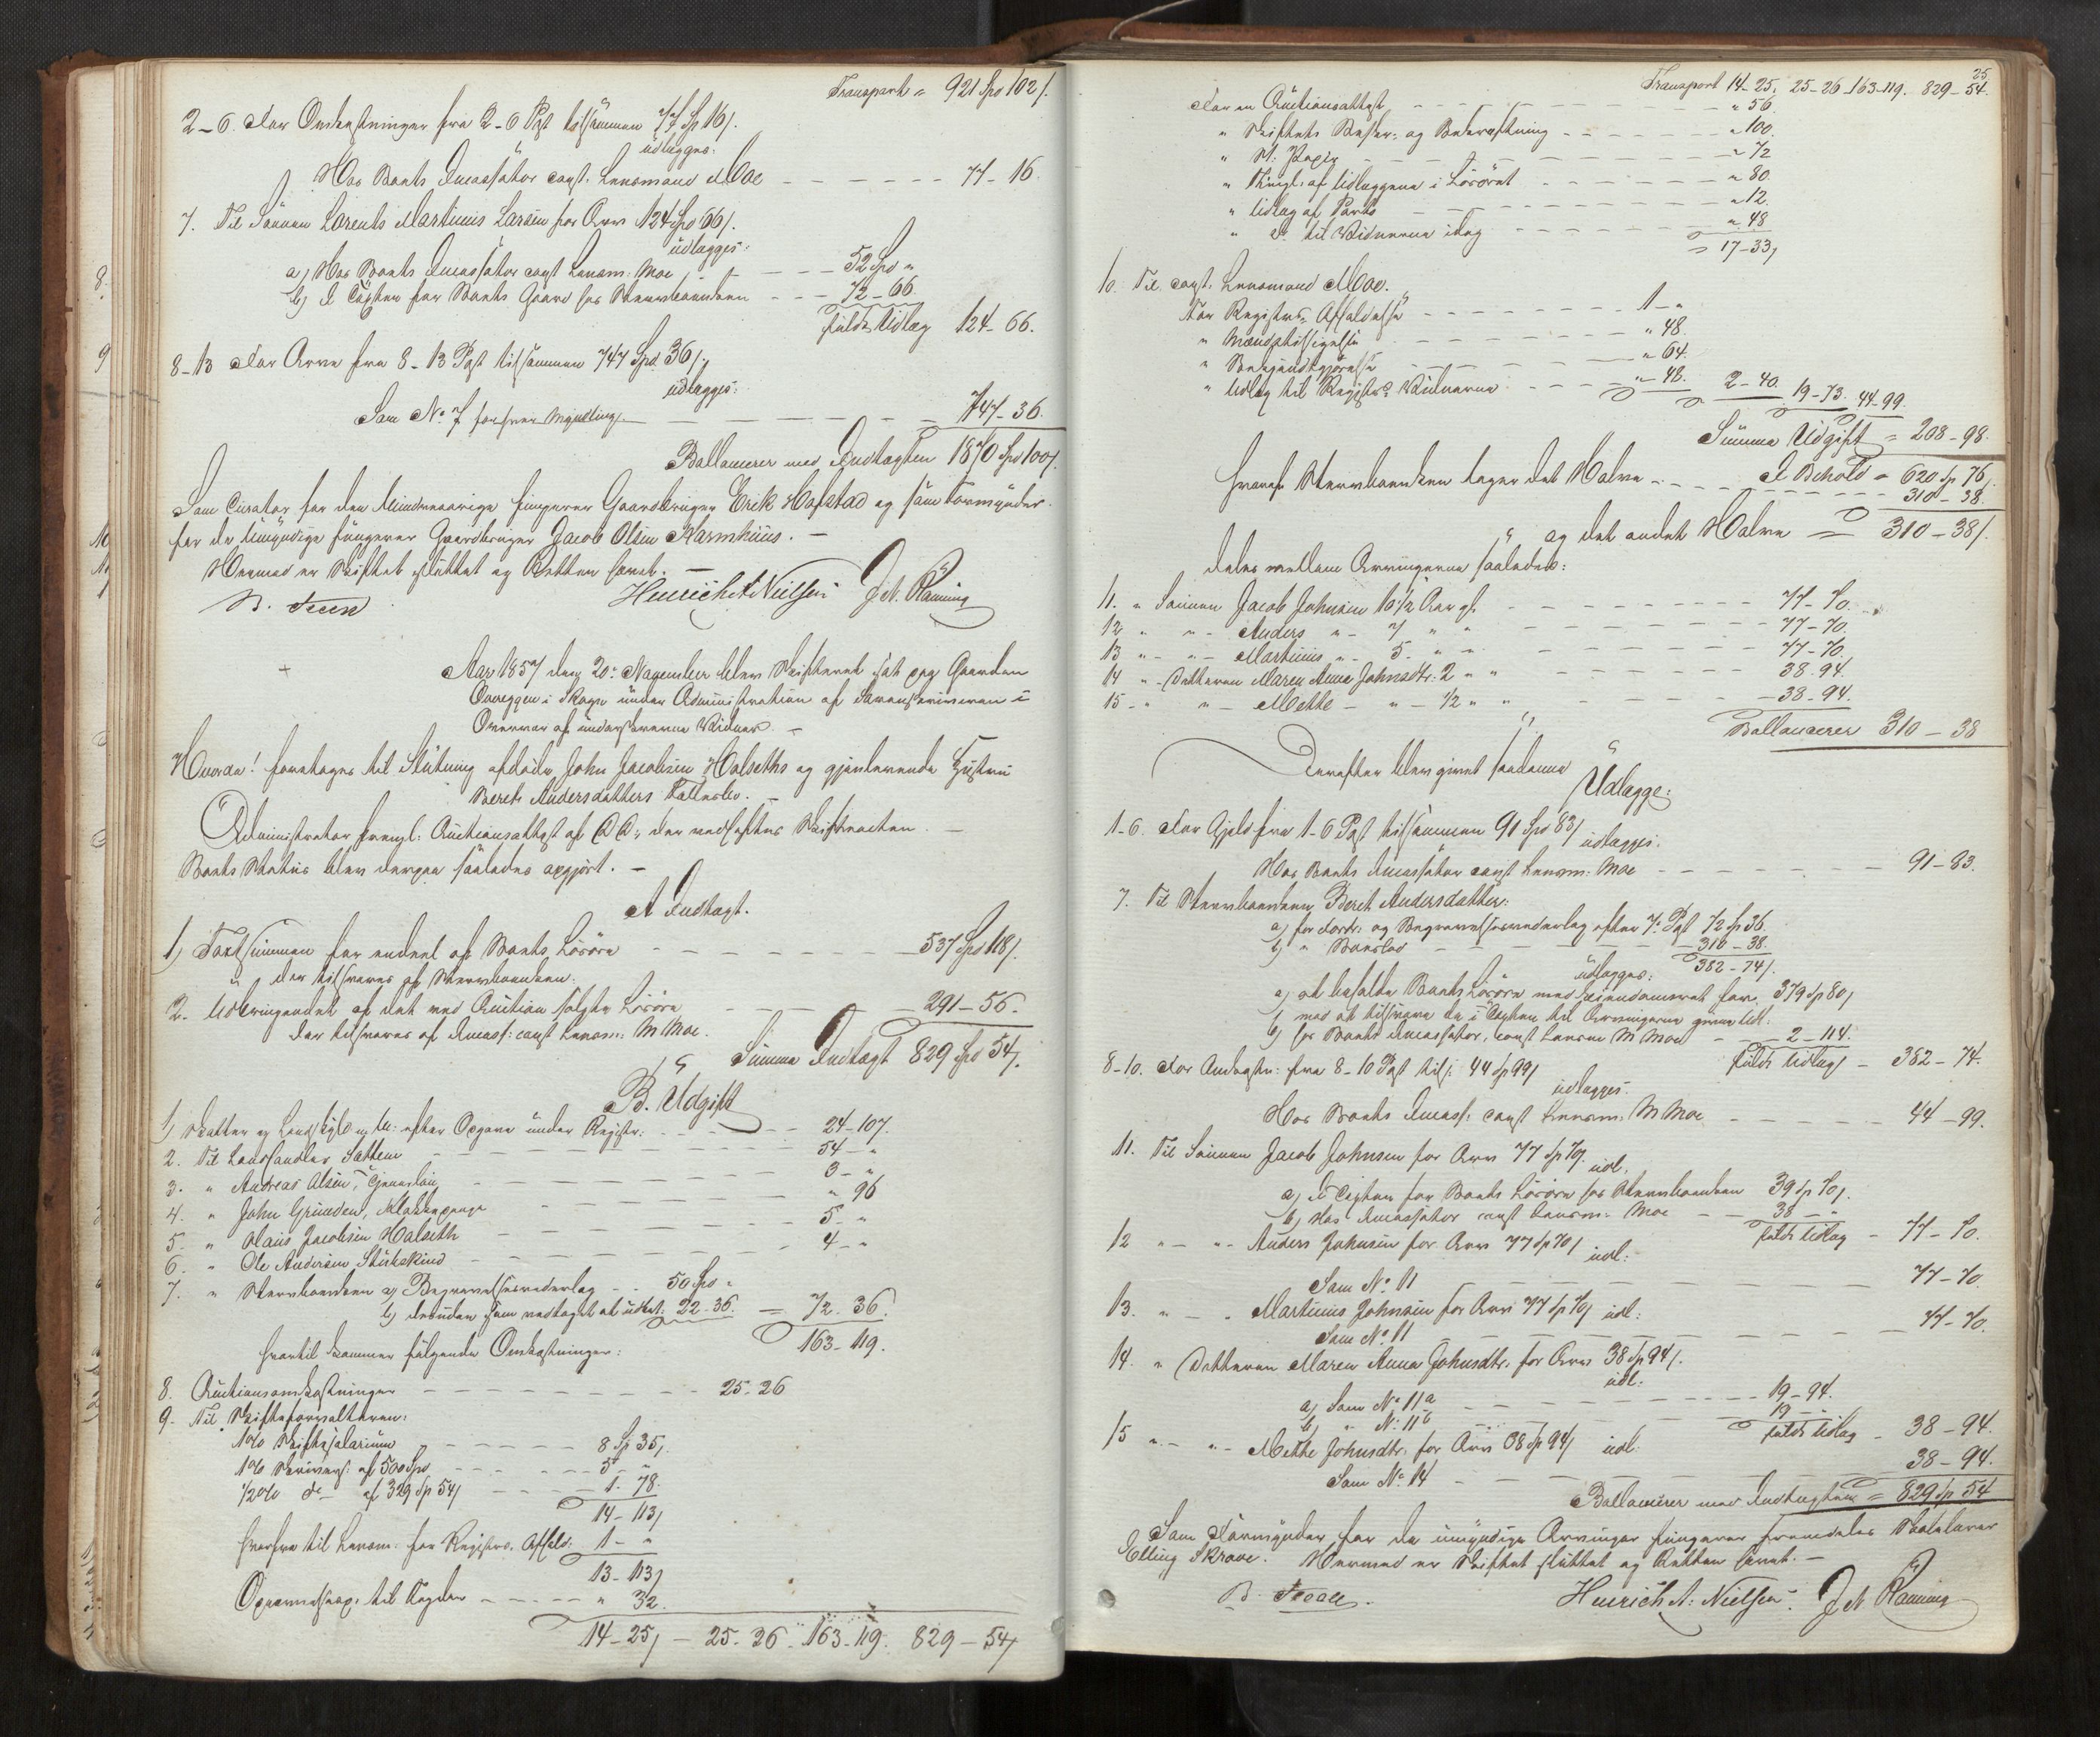 Transport = 921 Spd 102 ß.
2-6. For Omkostninger fra 2-6 Post tilsammen 77 Sp 16 ß.
udlægges:
Hos Boets Incassator const. Lensmand Moe - - - 77-16.
7. Til Sønnen Lorents Martinus Larsen for Arv 124 Spd 66 ß.
udlægges:
a, Hos Boets Incassator const Lensm: Moe - - - 52 Spd "
b, I Taxten for Boets Gaard hos Stervboenken - - - 72-66.
fuldt Udlæg 124-66.
8-13 For Arve fra 8-13 Post tilsammen 747 Spd. 36 ß.,
udlægges:
Som No. 7 for hver Myndling - - - 747-36.
Ballancerer med Indtægten 1870 Spd 100 ß.
Som Curator for den Mindreaarige fungerer Gaardbruger Erik Hofstad og som Formynder
for de umyndige fungerer Gaardbruger Jacob Olsen Marmhuus. -
Hermed er Skiftet sluttet og Retten hævet. -
Henrich A Nielsen J. N. Planning
Aar 1857 den 20. November blev Skifteret sat paa Gaarden
Overeggen i Skogn under Administration af Sorenskriveren i
Overvær af underskrevne Vidner. -
Hvorda! foretoges til Slutning afdøde John Jacobsen Halseths og gjenlevende Hustru
Beret Andersdatters Fællesbo. -
Administrator fremlagde: Auctionsattest af D.D., der vedheftes Skifteacten. -
Boets Status blev derpaa saaledes opgjort. -
A Indtægt.
1, Taxtsummen for endeel af Boets Løsøre - - - 537 Spd 118 ß.
der tilsvares af Stervboenken.
2. Udbringendet af det ved Auction solgte Løsøre - - - 291-56.
der tilsvares af Incass: const Lensm: M Moe.
Summa Indtægt 829 Spd 54 ß.
B. Udgift
1, Skatter og Landskyld m. M: efter Opgave under Registr: - - - 24-107.
2. Til Landhandler Sattem - - - 54-"
3. " Andreas Olsen, - - - 3-"
4. " John Grunden, - - - " 96
5. " Olaus Jacobsen Halseth - - - 5-"
6. " Ole Andersen Stubskind - - - 4-"
7. " Stervboenken a, Begravelsesvederlag - - 50 Spd "
b, desuden som vedtaget at udbet: 22-36. = 72-36.
163-119.
Hvortil kommer følgende Omkostninger:
8. Auctionsomkostninger - - - 25-26
9. Til Skifteforvalteren:
1% Skiftesalarium - - - 8 Sp 35 ß.
1% Skriverp: af 500 Spd - - - 5-"
1/2% do af 329 Sp 54 ß - - - 1-78.
14-113 ß
Hvorfra til Lensm: for Registrs. Afhold: 1-"
13-113 ß
til Fogden - - - " 32.
14-25 ß - 25-26. 163-119. 829-54 ß
25
Transport 14-25. 25-26-163-119. 829-54.
For en Auctionsattest - - - " 56.
" Skiftets Besl: og Berammelse - - - " 100.
" St: Papir - - - " 72
" Thingl: af Udlæggene i Løsøret - - - " 80.
" Udlæg af Porto - - - " 12.
" do til Vidnerne idag - - - " 48
= 17-33 ß
10. Til const. Lensmand Moe.
For Registrs. Afholdelse - - - 1-"
" Mændstilsigelse - - - " 48.
" Bekjendtgjørelse - - - " 64.
" Udlæg til Registrs Vidnerne - - - " 48. 2-40. 19-73. 44-99.
Summa Udgift = 208-98.
I Behold = 620 Sp 76 ß
Hvoraf Stervboenken tager det Halve - - - 310-38.
og det andet Halve = 310-38 ß.
deles mellem Arvingerne saaledes:
11. " Sønnen Jacob Johnsen 10 1/2 Aar gl. - - - 77-70.
12 " " - Anders " - 7 " " - - - 77-70.
13 " - " - Martinus " - 5 " " - - - 77-70.
14 " - Datteren Maren Anna Johnsdtr. 2 " " - - - 38-94.
15 - " " - Mette - " - 1/2 " " - - - 38-94.
Ballancerer 310-38
Derefter blev givet saadanne
Udlægge:
1-6. For Gjeld fra 1-6 Post tilsammen 91 Spd 83 ß
udlægges.
Hos Boets Incassator const Lensm: Moe - - - 91-83.
7. Til Stervboenken Beret Andersdatter:
a, for Fordr: og Begravelsesvederlag efter 7. Post 72 Sp 36.
b, " Boeslod - - - 310-38.
382-74 ß.
udlægges:
a, at beholde Boets Løsøre med Eiendomsret for 379 Sp 80 ß
mod at tilsvare de i Taxten til Arvingerne givne Udl:
b, hos Boets Incassator, const Lensm M Moe - - - 2-114.
fuldt Udlæg - 382-74.
8-10. For Omkostn: fra 8-10 Post tils: 44 Sp 99 ß
udlægges.
Hos Boets Incass: const Lensm: M Moe - - - 44-99.
11. Til Sønnen Jacob Johnsen for Arv 77 Sp 70 ß.
udl.
a, I Taxten for Boets Løsøre hos Stervboenken 39 Sp 70 ß.
b, Hos Incassator const Lensm: Moe - - - 38-"
fuldt Udlæg - 77-70.
12 " - " - Anders Johnsen for Arv 77 Sp 70 ß udl:
Som No. 11 - - - 77-70
13. " - " Martinus Johnsen for Arv 77 Sp 70 ß udl:
Som No. 11 - - - 77-70.
14. " Datteren Maren Anna Johnsdtr. for Arv 38 Sp 94 ß.
udl:
a, Som No. 11a - - - 19-94.
b, " No. 11b - - - 19-"
fuldt Udlæg - 38-94.
15 " - " - Mette Johnsdtr. for Arv 38 Sp 94 ß udl:
Som No. 14 - - - 38-94.
Ballancerer med Indtægten = 829 Sp 54
Som Formynder for de umyndige Arvinger fungerer fremdeles Skolelærer
Elling Skrove. Hermed er Skiftet sluttet og Retten hævet. -
Henrich A. Nielsen. J N Planning